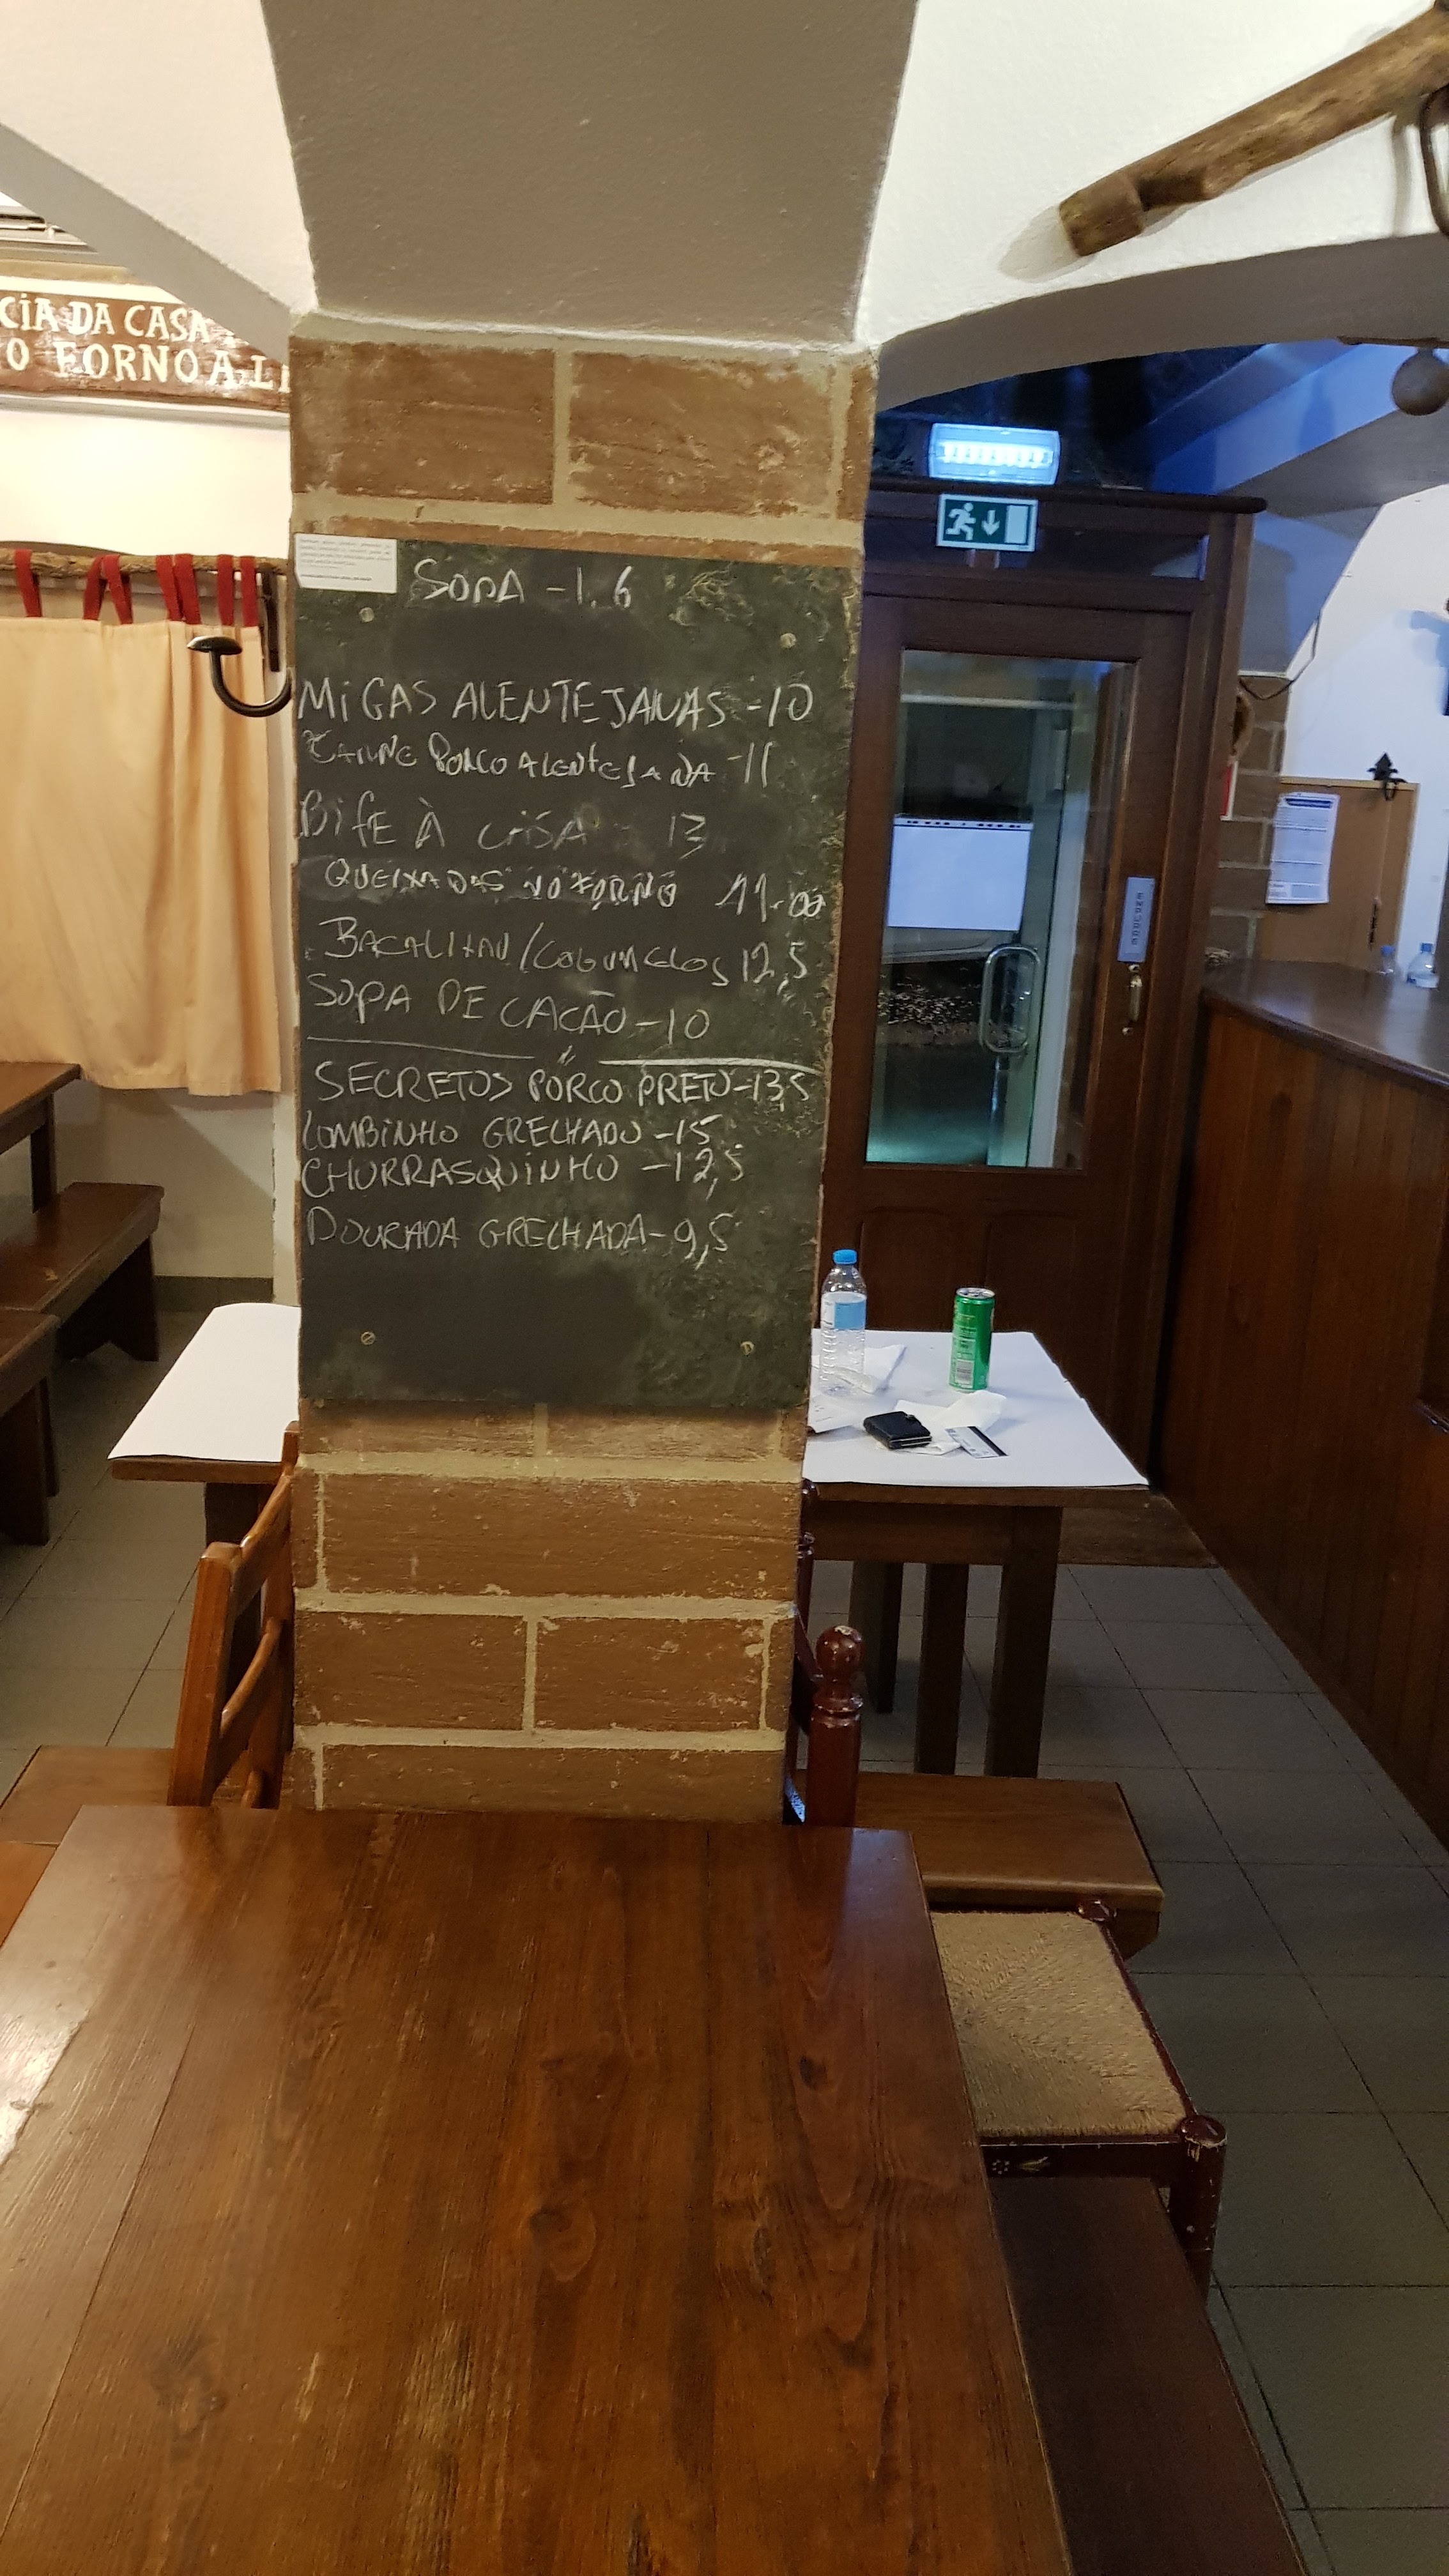 CIA DA CASA
O FORNO A L
SOPA -1.6
MIGAS ALENTEJANAS -10
CARNE PORCO ALENTEJANA -11
BIFE À CASA 13
QUEIXADAS NO FORNO 11.00
BACALHAU/COGUMELOS 12,5
SOPA DE CAÇÃO -10
SECRETOS PORCO PRETO -13,5
LOMBINHO GRELHADO -15
CHURRASQUINHO -12,5
DOURADA GRELHADA -9,5
EMPURRE